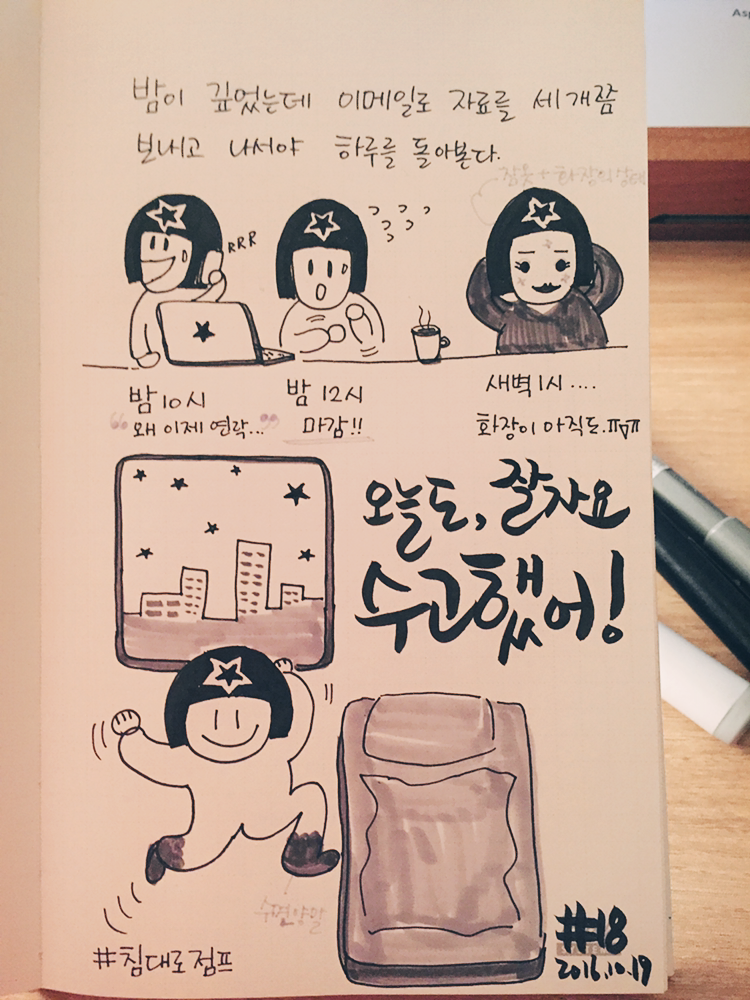 밤이 깊었는데 이메일로 자료를 세 개쯤
보내고 나서야 하루를 돌아본다.
잠옷 + 화장의 상태
RRR
밤 10시
"왜 이제 연락..."
밤 12시
마감!!
새벽 1시 ....
화장이 아직도.ㅠㅠ
오늘도, 잘자요
수고했어!
수면양말
#침대로점프
#18
2016.10.19